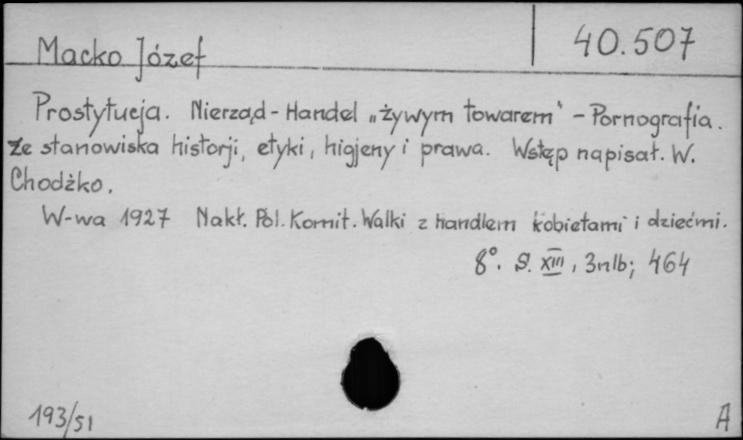 Macko Józef
40.507
Prostytucja. Nierząd - Handel „żywym towarem" - Pornografia.
Ze stanowiska historji, etyki, higjeny i prawa. Wstęp napisał. W.
Chodźko.
W-wa 1927 Nakł. Pol. Komit. Walki z handlem kobietami i dziećmi.
8°. S. XIII, 3nlb; 464
193/51
A